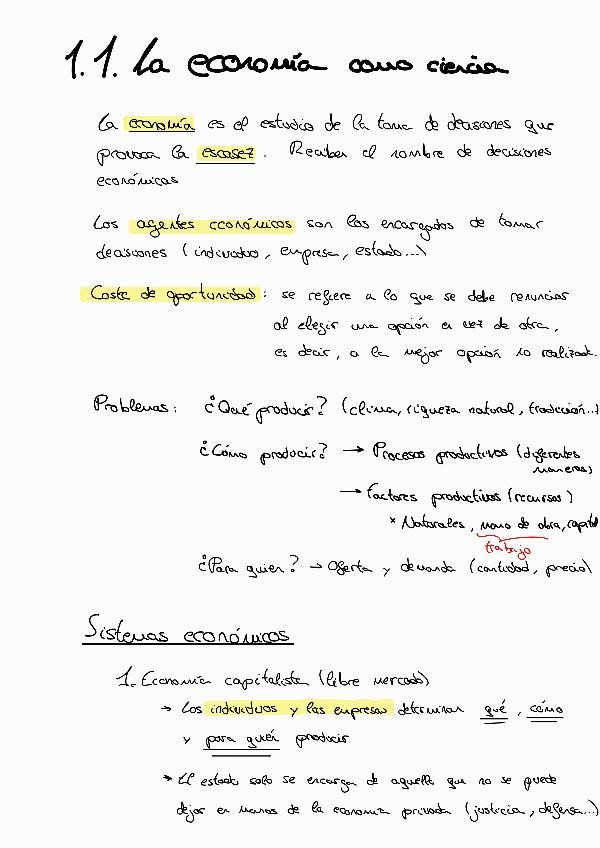 1.1. La economía como ciencia
La economía es el estudio de la toma de decisiones que
provoca la escasez. Reciben el nombre de decisiones
económicas
Los agentes económicos son los encargados de tomar
decisiones (individuo, empresa, estado...)
Coste de oportunidad: se refiere a lo que se debe renunciar
al elegir una opción en vez de otra,
es decir, a la mejor opción no realizada.
Problemas: ¿Qué producir? (clima, riqueza natural, tradición...)
¿Cómo producir? → Procesos productivos (diferentes
maneras)
→ Factores productivos (recursos)
* Naturales, mano de obra, capital
trabajo
¿Para quien? → Oferta y demanda (cantidad, precio)
Sistemas económicos
1. Economía capitalista (libre mercado)
→ Los individuos y las empresas determinan qué, cómo
y para quién producir
→ El estado solo se encarga de aquello que no se puede
dejar en manos de la economía privada (justicia, defensa...)